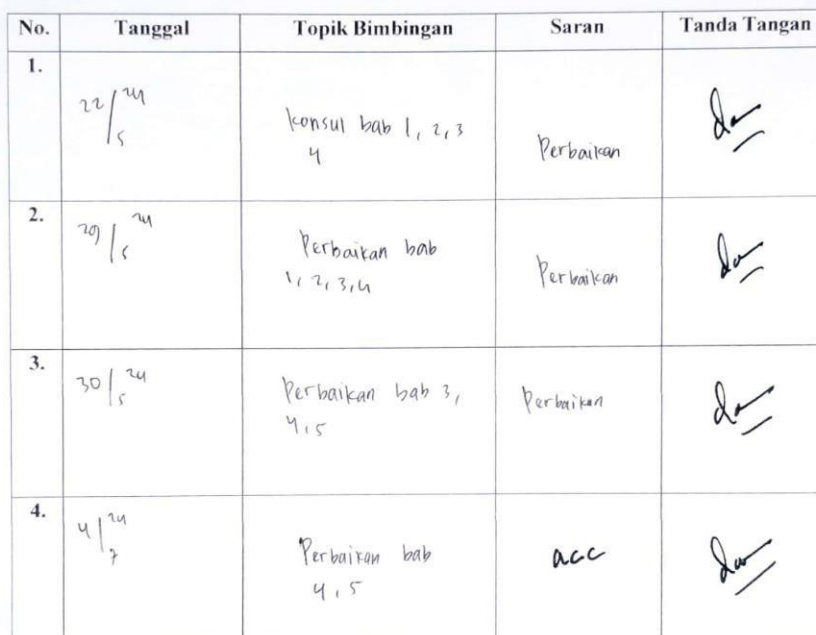 No. Tanggal Topik Bimbingan Saran Tanda Tangan
1.
22/5 24
Konsul bab 1, 2, 3
4
Perbaikan
2.
29/5 24
Perbaikan bab
1, 2, 3, 4
Perbaikan
3.
30/5 24
Perbaikan bab 3,
4, 5
Perbaikan
4.
4/7 24
Perbaikan bab
4, 5
acc